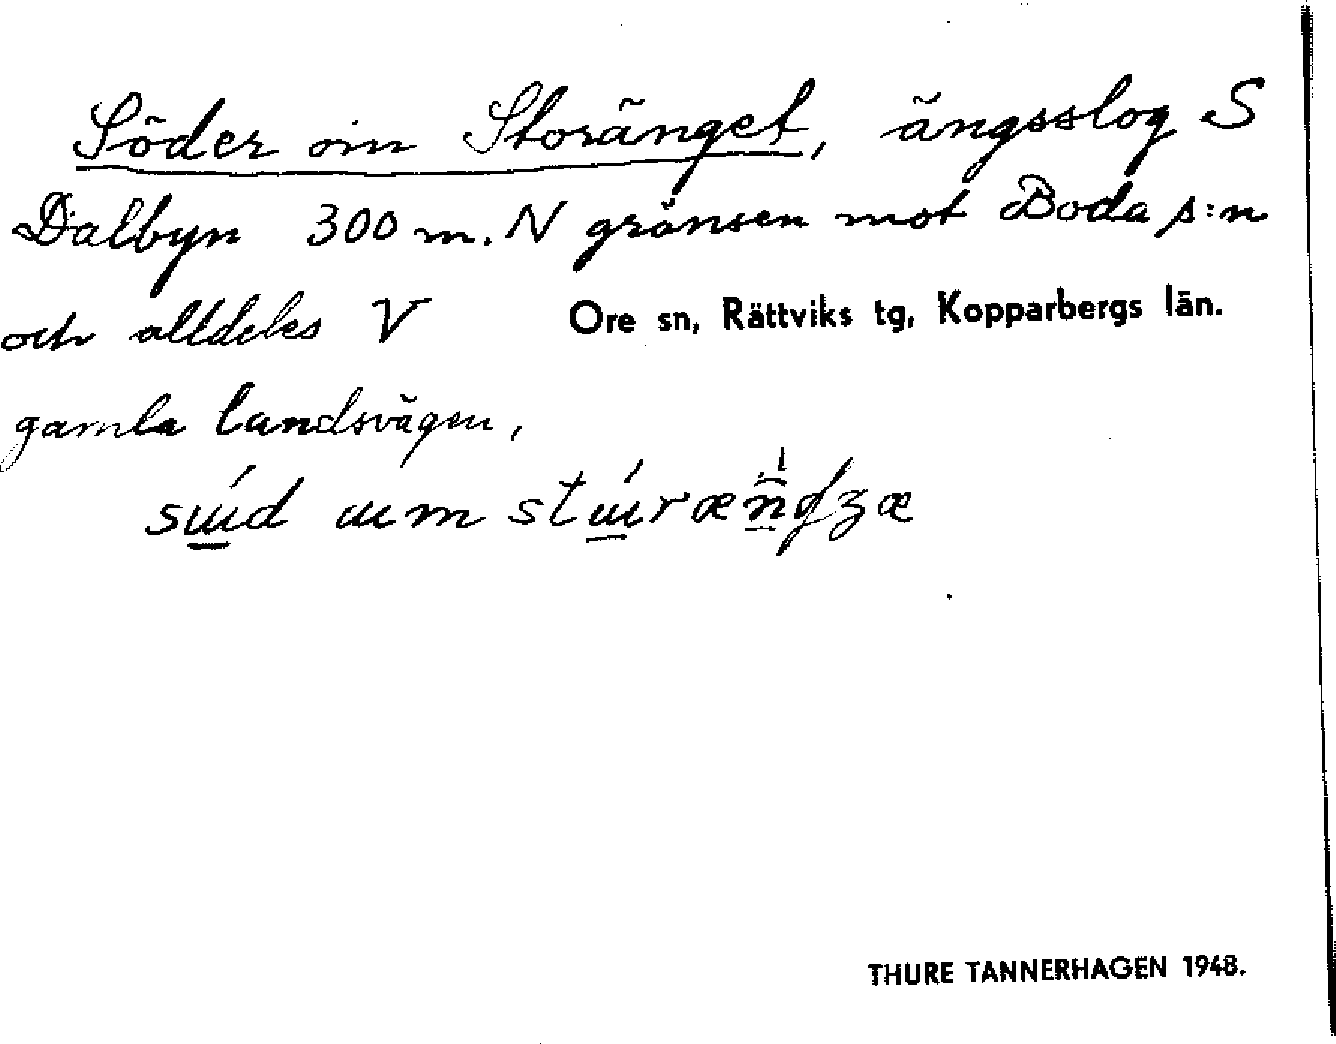 Söder om Storänget, ängsslog S
Dalbyn 300 m. N gränsen mot Boda s:n
och alldeles V
Ore sn, Rättviks tg, Kopparbergs län.
gamla landsvägen,
THURE TANNERHAGEN 1948.